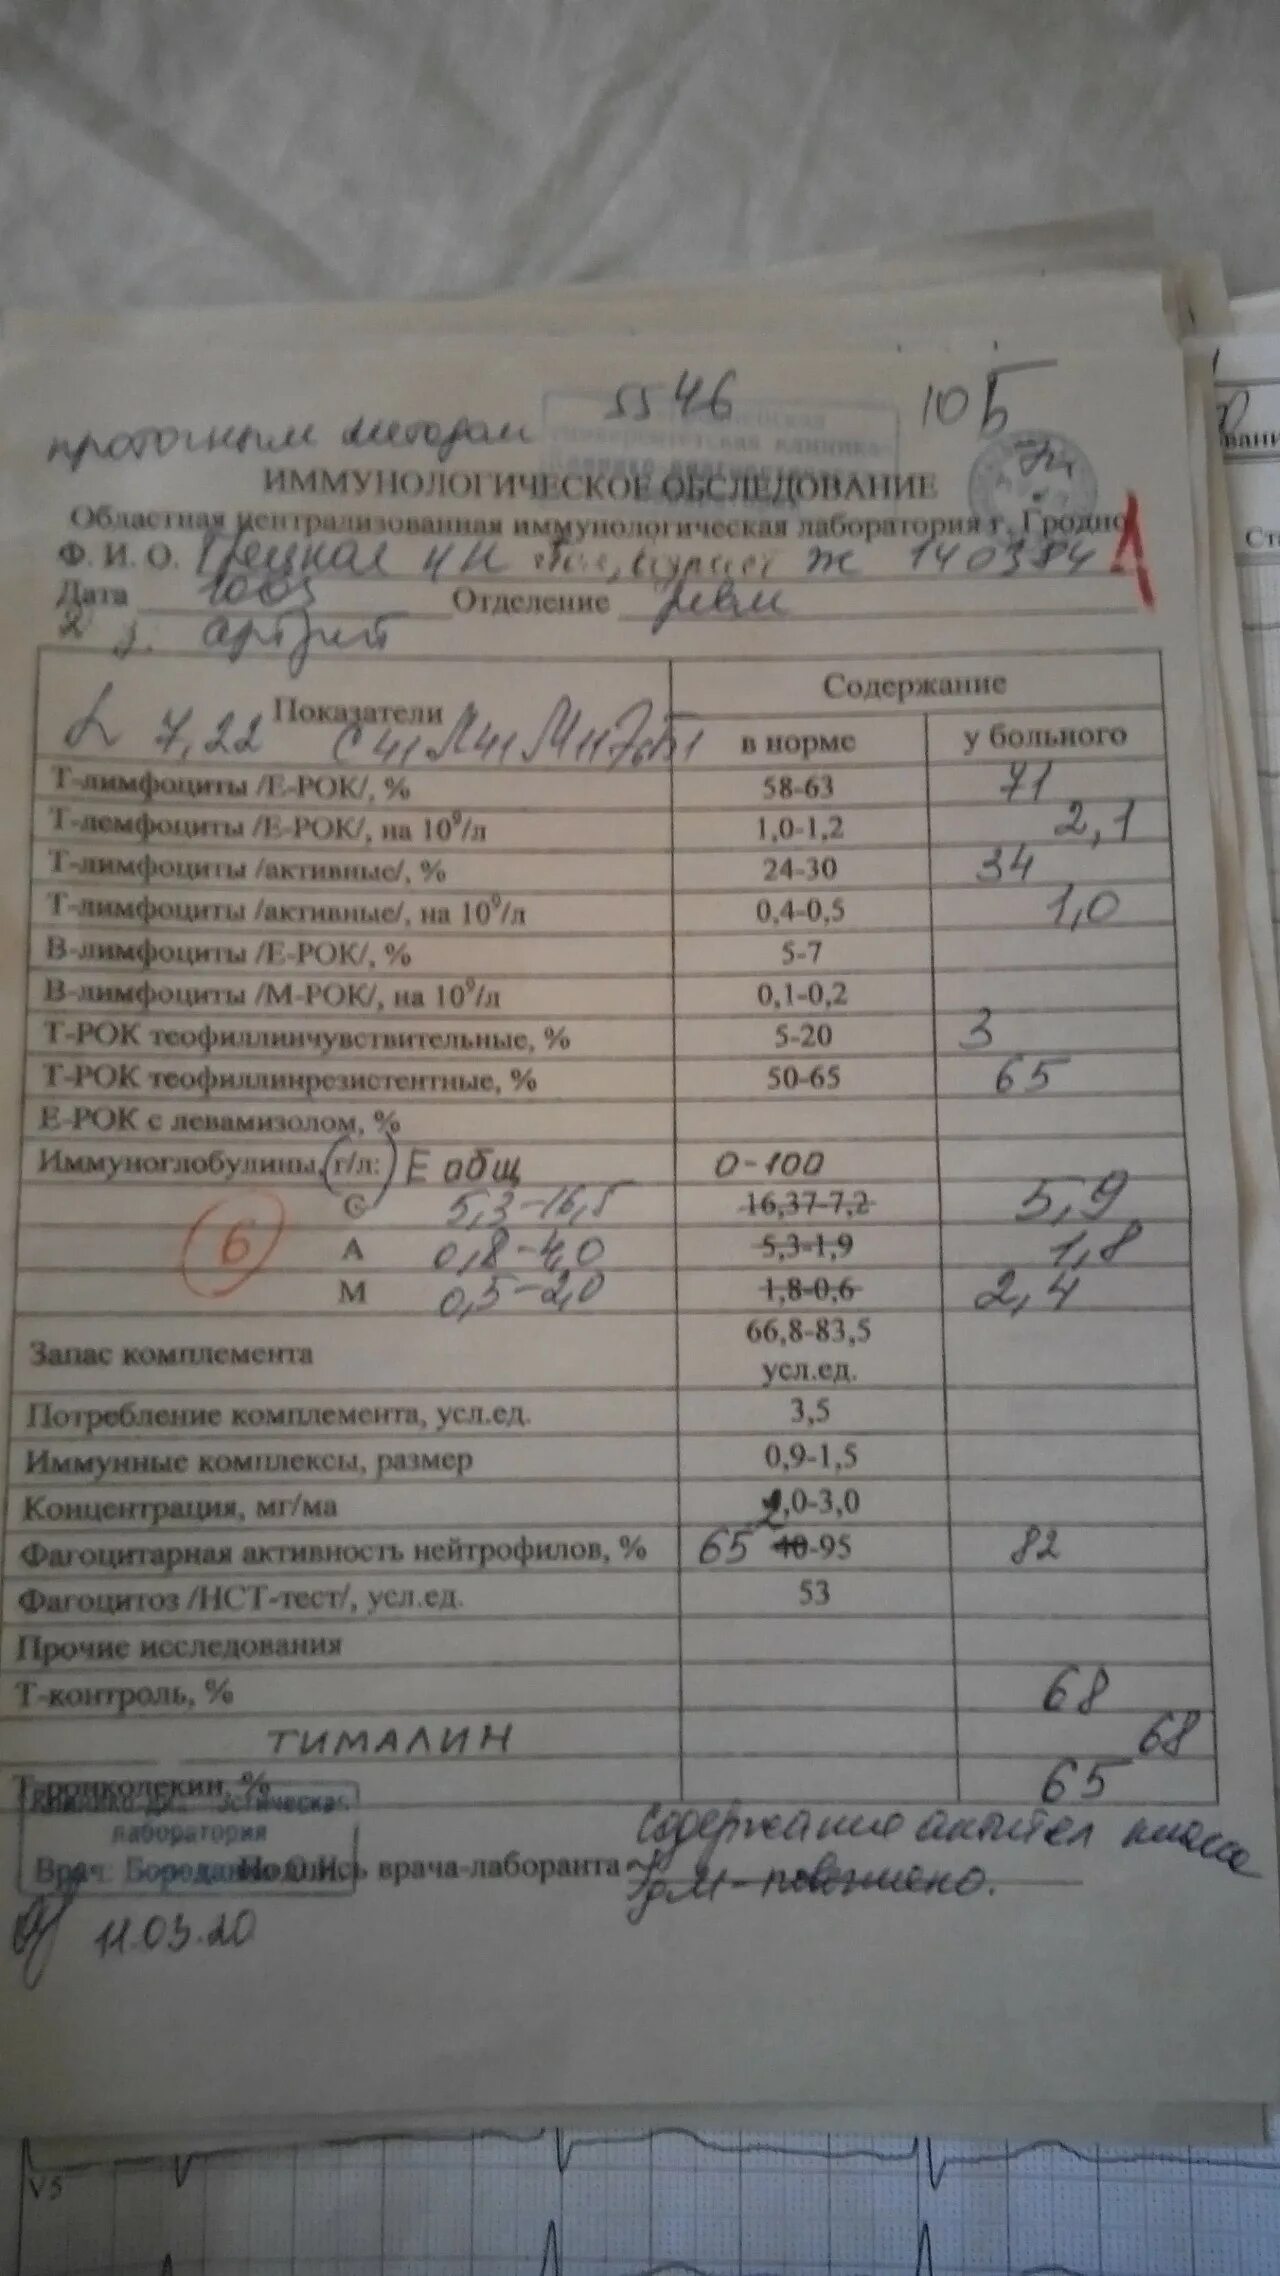 5546 10Б
проточным методом
университетская клиника
ИММУНОЛОГИЧЕСКОЕ ОБСЛЕДОВАНИЕ
Областная централизованная иммунологическая лаборатория г. Гродно
Ф. И. О. Ж 140384
Дата 1003 Отделение ревм
артрит
Показатели Содержание
L 7,22 С41 Л41 М11
в норме у больного
Т-лимфоциты /Е-РОК/, % 58-63 71
Т-лемфоциты /Е-РОК/, на 10⁹/л 1,0-1,2 2,1
Т-лимфоциты /активные/, % 24-30 34
Т-лимфоциты /активные/, на 10⁹/л 0,4-0,5 1,0
В-лимфоциты /Е-РОК/, % 5-7
В-лимфоциты /М-РОК/, на 10⁹/л 0,1-0,2
Т-РОК теофиллинчувствительные, % 5-20 3
Т-РОК теофиллинрезистентные, % 50-65 65
Е-РОК с левамизолом, %
Иммуноглобулины, г/л: Е общ 0-100
G 5,3-16,5 16,37-7,2 5,9
6 А 0,8-4,0 5,3-1,9 1,8
М 0,5-2,0 1,8-0,6 2,4
Запас комплемента 66,8-83,5 усл.ед.
Потребление комплемента, усл.ед. 3,5
Иммунные комплексы, размер 0,9-1,5
Концентрация, мг/ма 2,0-3,0
Фагоцитарная активность нейтрофилов, % 65 40-95 82
Фагоцитоз /НСТ-тест/, усл.ед. 53
Прочие исследования
Т-контроль, % 68
ТИМАЛИН 68
Т-ронколекин, % 65
лаборатория
Содержание антител класса
Врач: подпись врача-лаборанта JgM - повышено.
11.03.20
V5